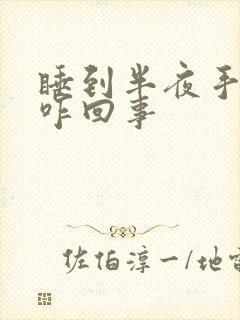 睡到半夜手
咋回事
佐伯淳一/地